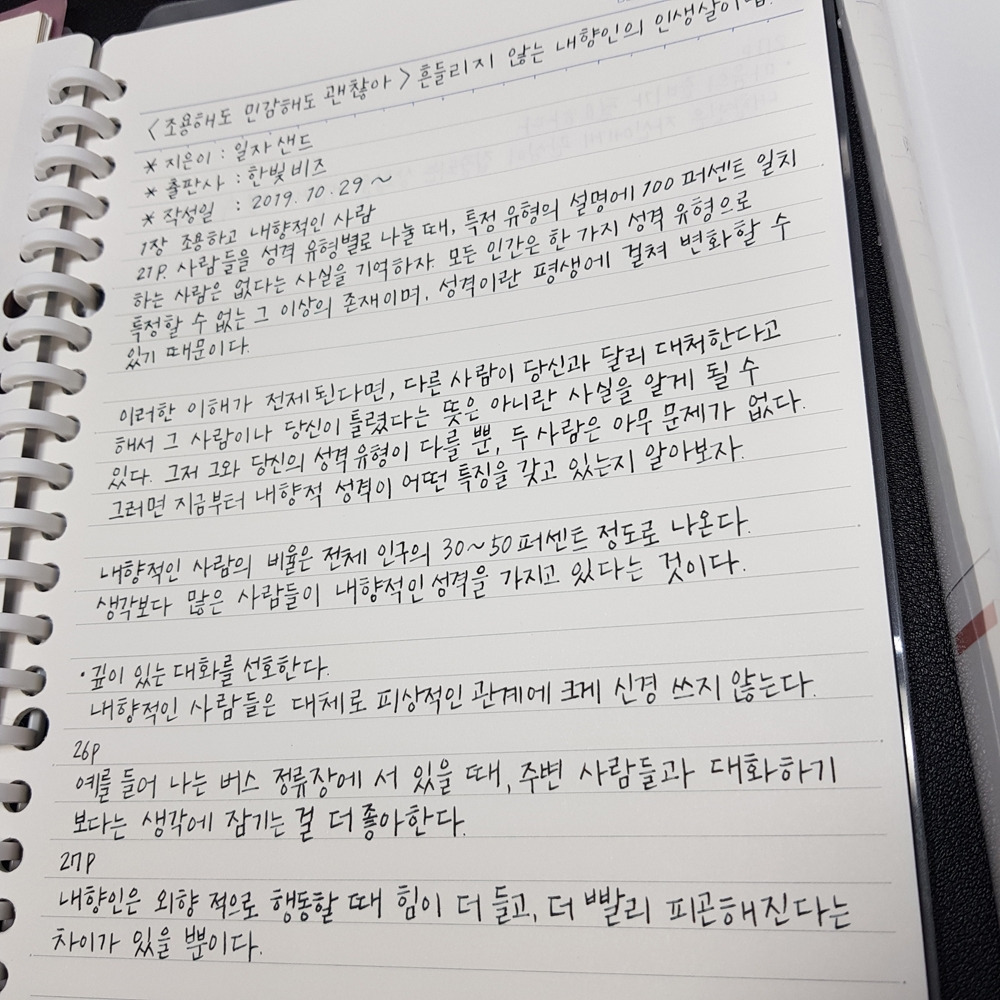 <조용해도 민감해도 괜찮아> 흔들리지 않는 내향인의 인생살이법
* 지은이 : 일자 샌드
* 출판사 : 한빛비즈
* 작성일 : 2019. 10. 29 ~
1장 조용하고 내향적인 사람
21P. 사람들을 성격 유형별로 나눌 때, 특정 유형의 설명에 100 퍼센트 일치
하는 사람은 없다는 사실을 기억하자. 모든 인간은 한 가지 성격 유형으로
특정할 수 없는 그 이상의 존재이며, 성격이란 평생에 걸쳐 변화할 수
있기 때문이다.
이러한 이해가 전제된다면, 다른 사람이 당신과 달리 대처한다고
해서 그 사람이나 당신이 틀렸다는 뜻은 아니란 사실을 알게 될 수
있다. 그저 그와 당신의 성격유형이 다를 뿐, 두 사람은 아무 문제가 없다.
그러면 지금부터 내향적 성격이 어떤 특징을 갖고 있는지 알아보자.
내향적인 사람의 비율은 전체 인구의 30~50퍼센트 정도로 나온다.
생각보다 많은 사람들이 내향적인 성격을 가지고 있다는 것이다.
· 깊이 있는 대화를 선호한다.
내향적인 사람들은 대체로 피상적인 관계에 크게 신경 쓰지 않는다.
26P
예를 들어 나는 버스 정류장에 서 있을 때, 주변 사람들과 대화하기
보다는 생각에 잠기는 걸 더 좋아한다.
27P
내향인은 외향 적으로 행동할 때 힘이 더 들고, 더 빨리 피곤해진다는
차이가 있을 뿐이다.